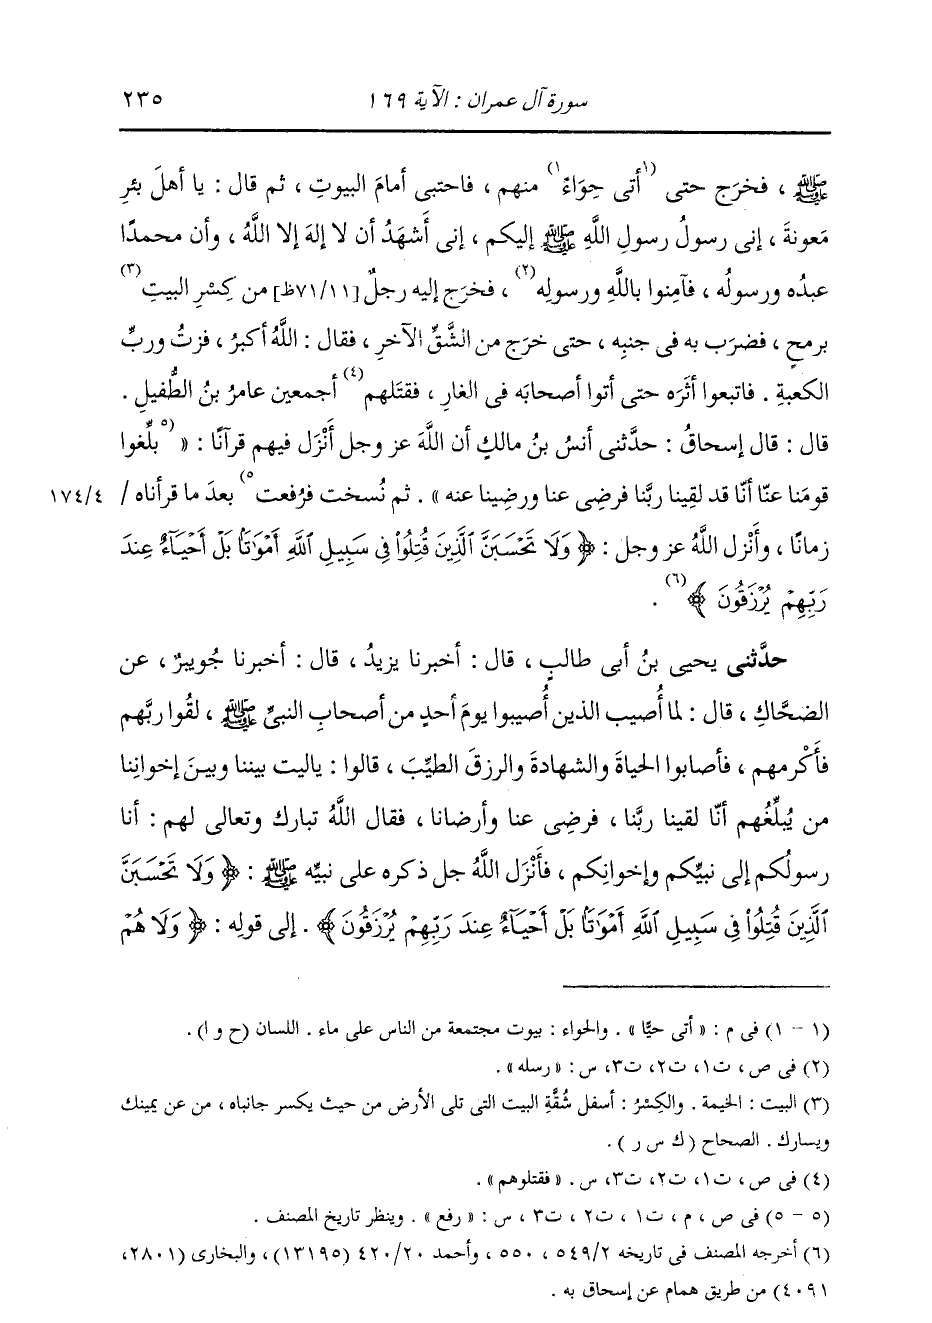 سورة آل عمران : الآية ١٦٩ ٢٣٥
ﷺ ، فخرَج حتى (١) أتى حِوَاءً (١) منهم ، فاحتبى أمامَ البيوتِ ، ثم قال : يا أهلَ بئرِ
مَعونةَ ، إنى رسولُ رسولِ اللَّهِ ﷺ إليكم ، إنى أَشهَدُ أن لا إلهَ إلا اللَّهُ ، وأن محمدًا
عبدُه ورسولُه ، فآمِنوا باللَّهِ ورسولِه (٢) ، فخرَج إليه رجلٌ [٧١/١١ظ] من كِسْرِ البيتِ (٣)
برمحٍ ، فضرَب به فى جنبِه ، حتى خرَج من الشَّقِّ الآخرِ ، فقال : اللَّهُ أكبرُ ، فزتُ وربِّ
الكعبةِ . فاتبعوا أثَرَه حتى أتوا أصحابَه فى الغارِ ، فقتَلهم (٤) أجمعين عامرُ بنُ الطُّفيلِ .
قال : قال إسحاقُ : حدَّثنى أنسُ بنُ مالكٍ أن اللَّهَ عز وجل أَنْزَل فيهم قرآنًا : « (٥) بلِّغوا
قومَنا عنّا أنّا قد لقِينا ربَّنا فرضِى عنا ورضِينا عنه » . ثم نُسخت فرُفعت (٥) بعدَ ما قرأناه / ١٧٤/٤
زمانًا ، وأَنْزل اللَّهُ عز وجل : ﴿ وَلَا تَحْسَبَنَّ ٱلَّذِينَ قُتِلُوا۟ فِى سَبِيلِ ٱللَّهِ أَمْوَٰتًۢا بَلْ أَحْيَآءٌ عِندَ
رَبِّهِمْ يُرْزَقُونَ ﴾ (٦) .
حدَّثنى يحيى بنُ أبى طالبٍ ، قال : أخبرنا يزيدُ ، قال : أخبرنا جُويبرٌ ، عن
الضحَّاكِ ، قال : لما أُصيب الذين أُصيبوا يومَ أحدٍ من أصحابِ النبىِّ ﷺ ، لقُوا ربَّهم
فأَكْرمهم ، فأصابوا الحياةَ والشهادةَ والرزقَ الطيِّبَ ، قالوا : ياليت بيننا وبينَ إخوانِنا
من يُبلِّغُهم أنّا لقينا ربَّنا ، فرضِى عنا وأرضانا ، فقال اللَّهُ تبارك وتعالى لهم : أنا
رسولُكم إلى نبيِّكم وإخوانِكم ، فأَنْزَل اللَّهُ جل ذكره على نبيِّه ﷺ : ﴿ وَلَا تَحْسَبَنَّ
ٱلَّذِينَ قُتِلُوا۟ فِى سَبِيلِ ٱللَّهِ أَمْوَٰتًۢا بَلْ أَحْيَآءٌ عِندَ رَبِّهِمْ يُرْزَقُونَ ﴾ . إلى قولِه : ﴿ وَلَا هُمْ
(١ - ١) فى م : « أتى حيًّا » . والحواء : بيوت مجتمعة من الناس على ماء . اللسان (ح و ا) .
(٢) فى ص ، ت١، ت٢، ت٣، س : « رسله » .
(٣) البيت : الخيمة . والكِسْرُ : أسفل شُقَّةِ البيت التى تلى الأرض من حيث يكسر جانباه ، من عن يمينك
ويسارك . الصحاح (ك س ر ) .
(٤) فى ص ، ت١، ت٢، ت٣، س . « فقتلوهم » .
(٥ - ٥) فى ص ، م ، ت١ ، ت٢ ، ت٣ ، س : « رفع » . وينظر تاريخ المصنف .
(٦) أخرجه المصنف فى تاريخه ٥٤٩/٢ ، ٥٥٠ ، وأحمد ٤٢٠/٢٠ (١٣١٩٥) ، والبخارى (٢٨٠١،
٤٠٩١) من طريق همام عن إسحاق به .